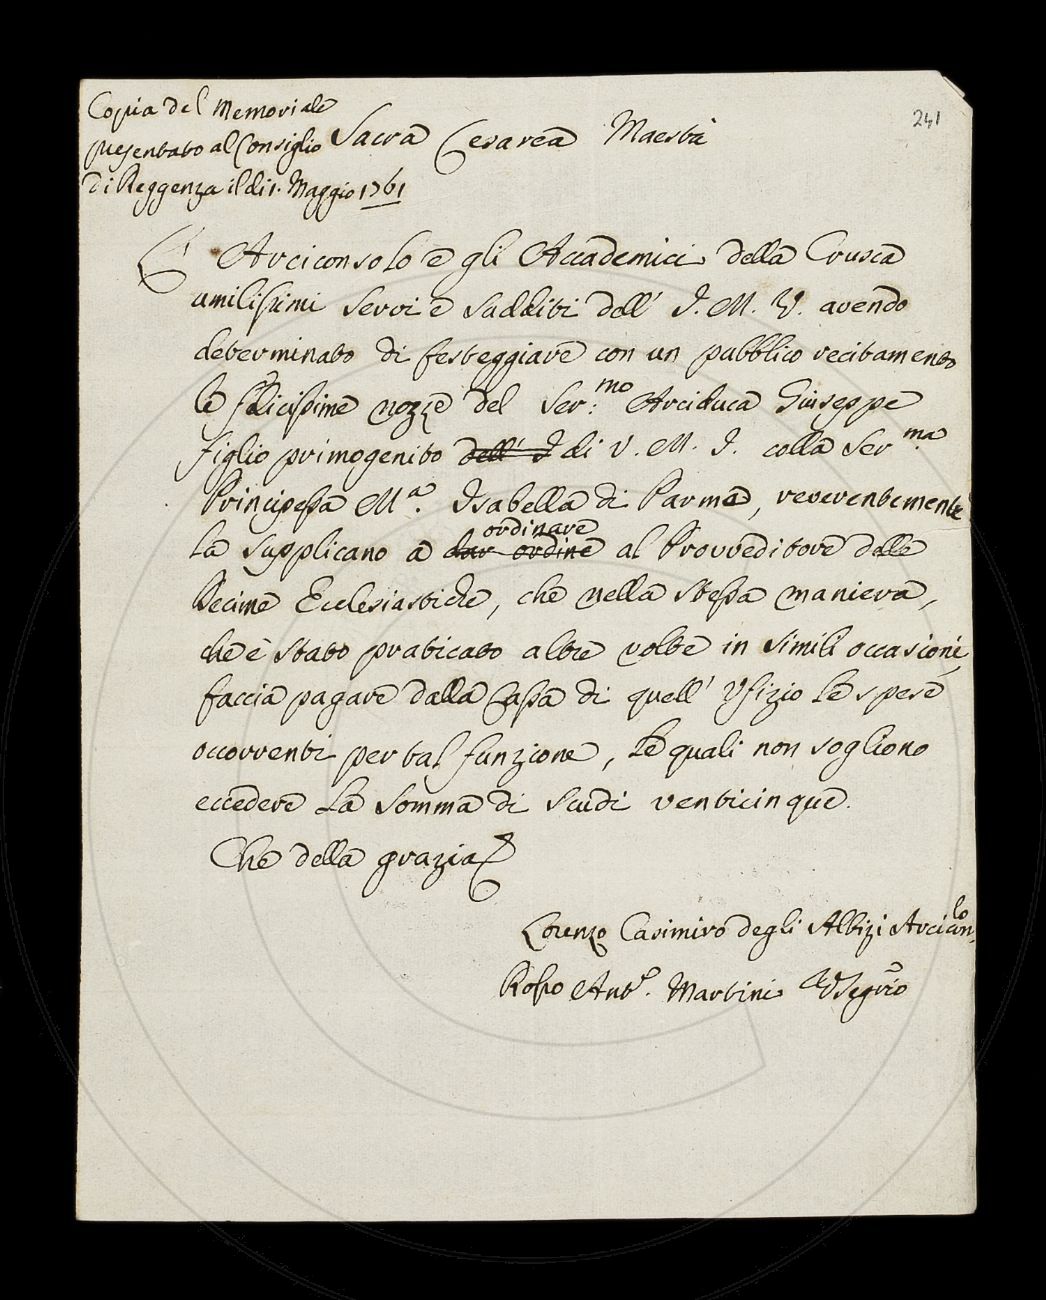 Copia del Memoriale
presentato al Consiglio
di Reggenza il dì 1. Maggio 1761
241
Sacra Cesarea Maestà
L'Arciconsolo e gli Accademici della Crusca
umilissimi servi e sudditi dell' I. M. V. avendo
determinato di festeggiare con un pubblico recitamento
le felicissime nozze del Ser.mo Arciduca Giuseppe
figlio primogenito dell' I di V. M. I. colla Ser.ma
Principessa M.a Isabella di Parma, reverentemente
ordinare
la supplicano a dar ordine al Provveditore delle
Decime Ecclesiastiche, che nella stessa maniera,
che è stato praticato altre volte in simili occasioni,
faccia pagare dalla Cassa di quell' Ufizio le spese
occorrenti per tal funzione, le quali non sogliono
eccedere la somma di scudi venticinque.
Che della grazia
Lorenzo Casimiro degli Albizi Arcicon.lo
Rosso Ant.o Martini Segrio